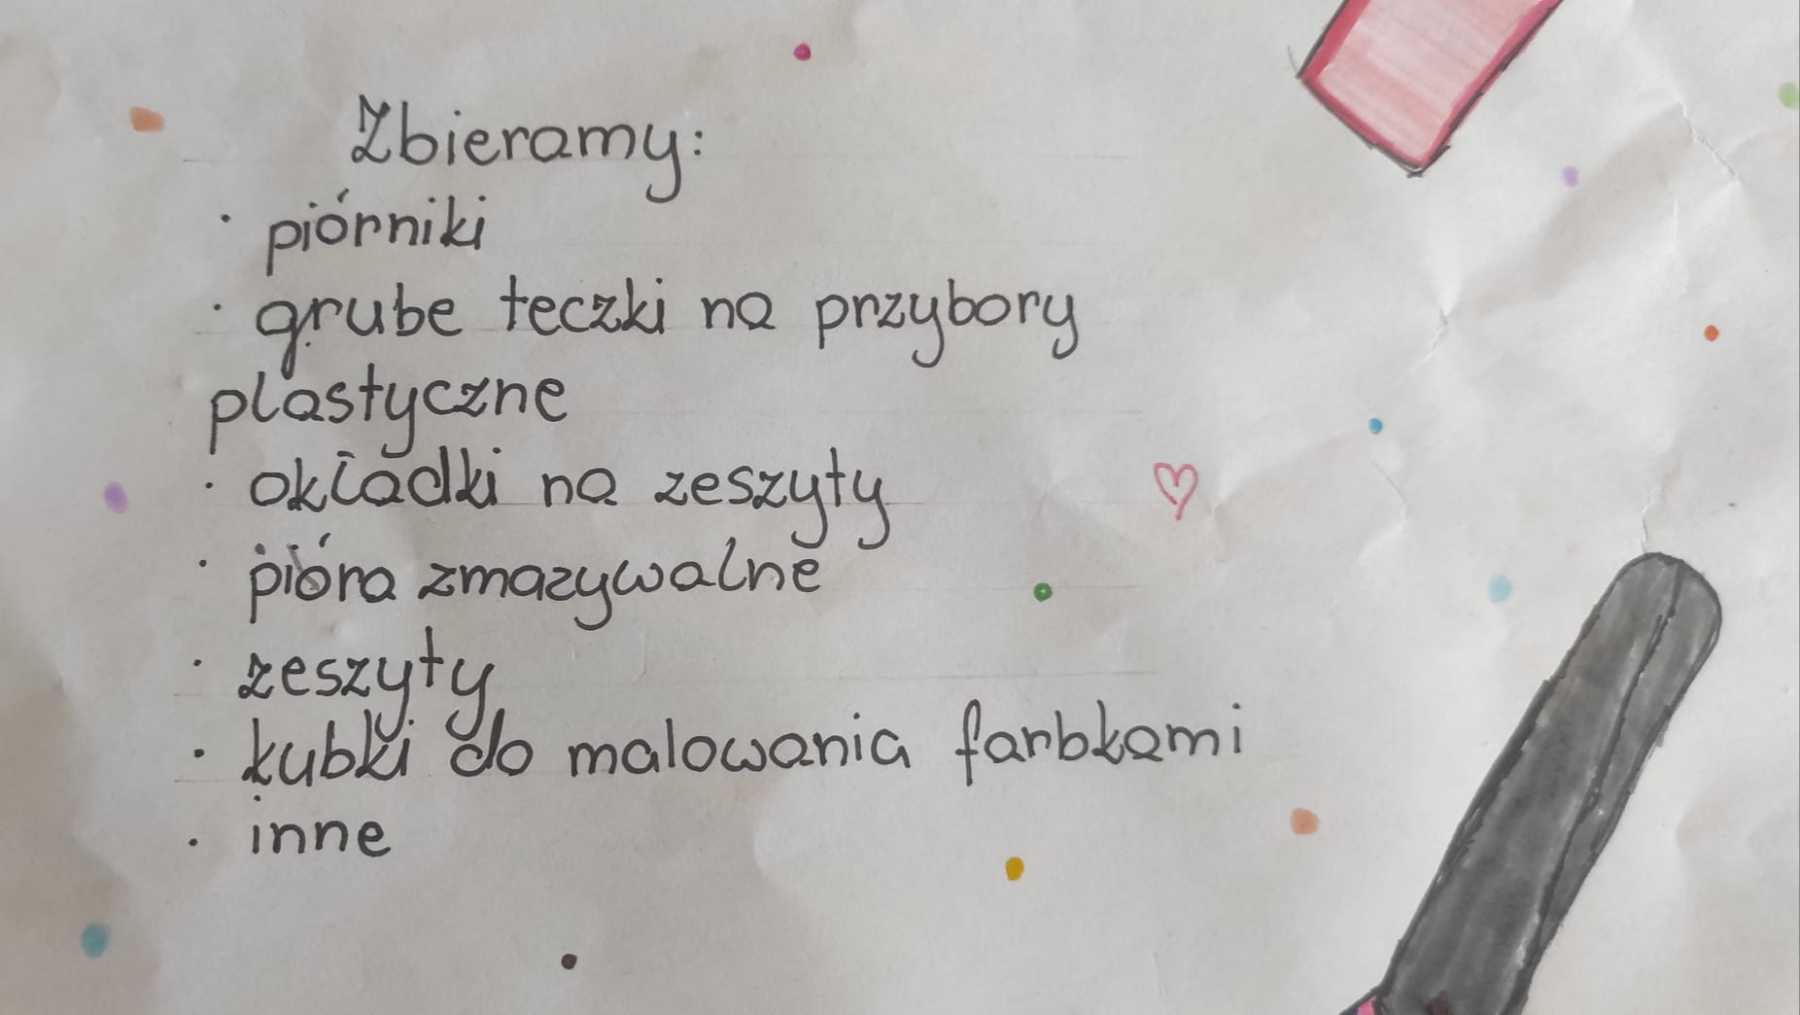 Zbieramy:
· piórniki
· grube teczki na przybory
plastyczne
· okładki na zeszyty
· pióra zmazywalne
· zeszyty
· kubki do malowania farbkami
· inne